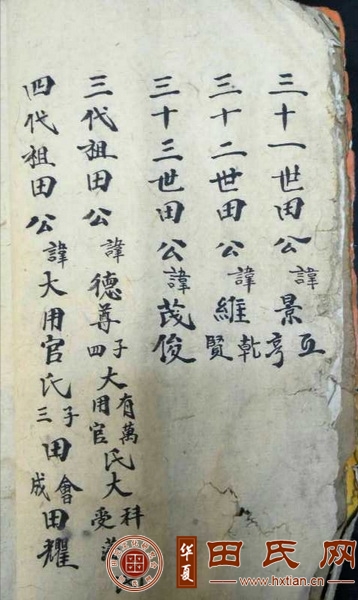 三十一世田公諱景亨 互
三十二世田公諱維賢 乾
三十三世田公諱茂俊
三代祖田公諱德尊四子大有萬大用官氏大科受
四代祖田公諱大用官氏三子田會成田耀
华夏
田氏网
www.hxtian.cn